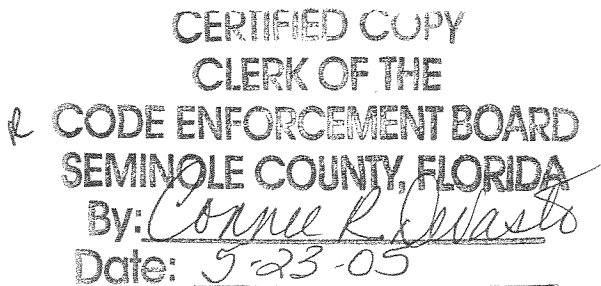 CERTIFIED COPY
CLERK OF THE
CODE ENFORCEMENT BOARD
SEMINOLE COUNTY, FLORIDA
By: Connie R. DeVasto
Date: 5-23-05